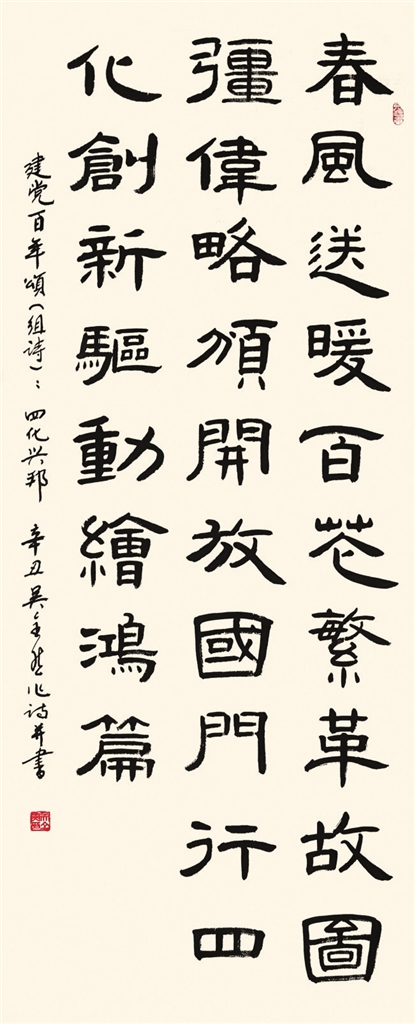 春風送暖百花繁革故圖
彊偉略頒開放國門行四
化創新驅動繪鴻篇
建党百年頌(组诗):四化兴邦 辛丑吴作诗并書